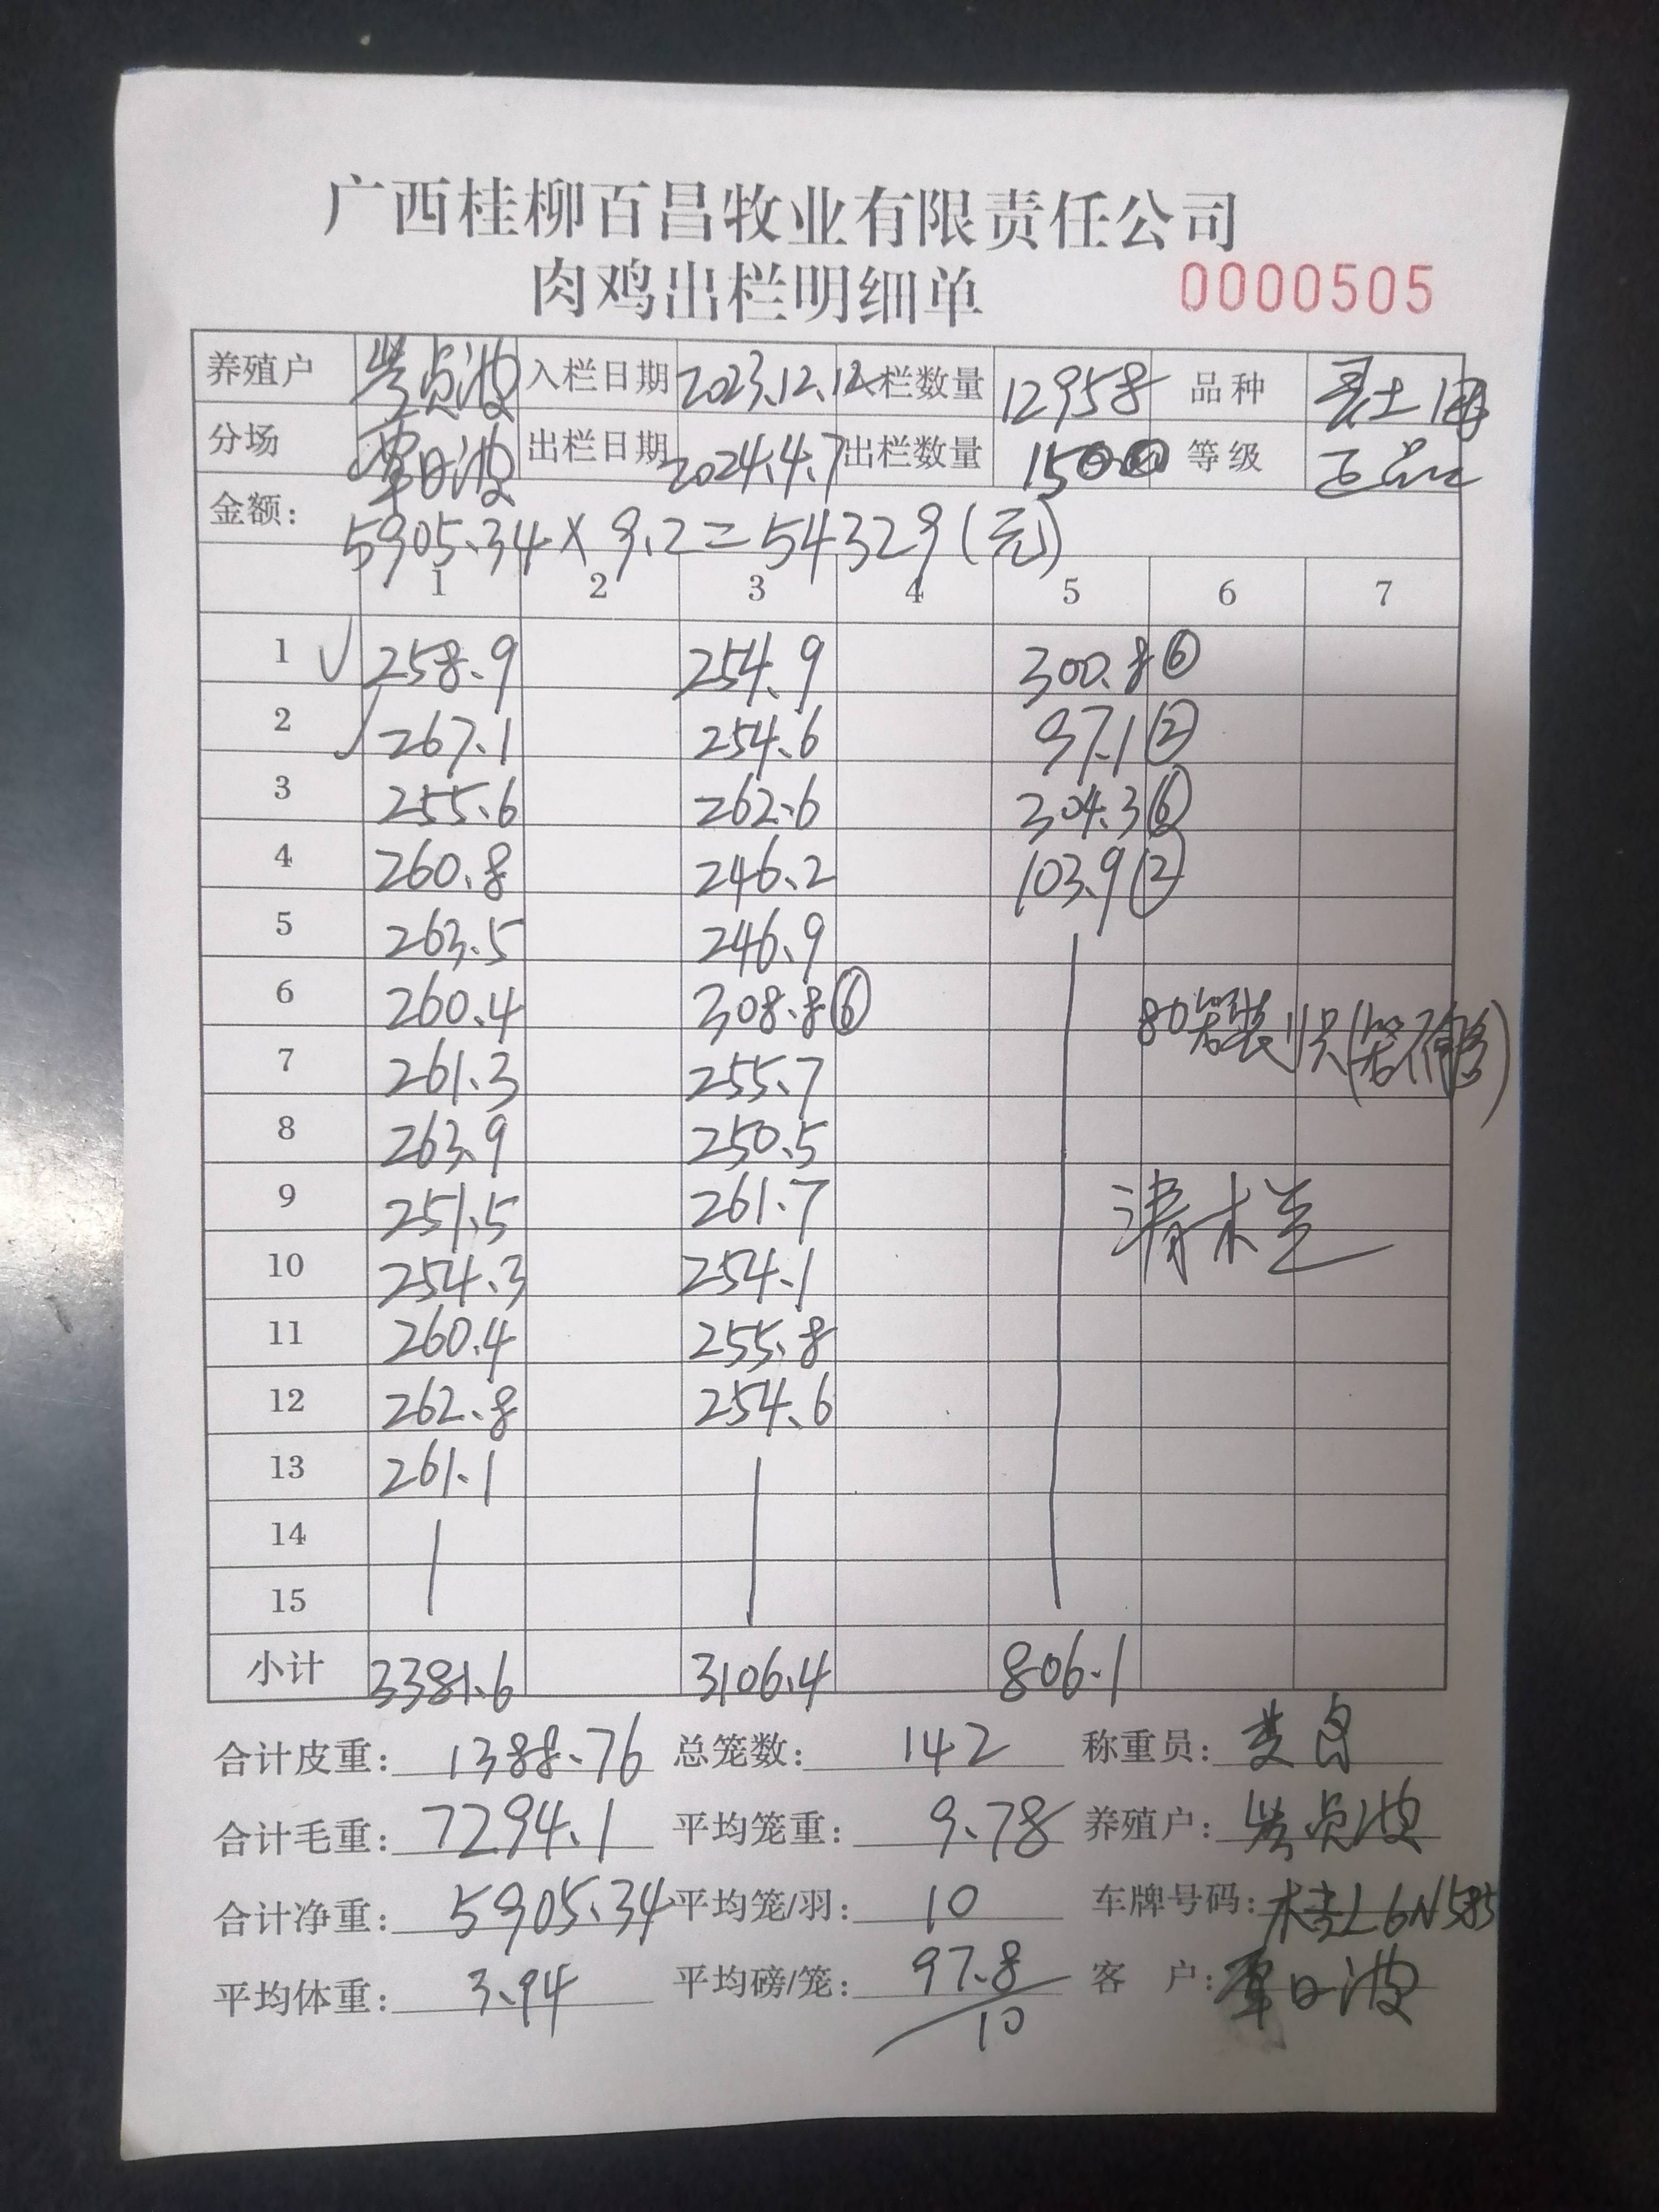 广西桂柳百昌牧业有限责任公司
肉鸡出栏明细单 0000505
养殖户 入栏日期 2023.12.12 栏数量 12958 品种 土
分场 覃日波 出栏日期 2024.4.7 出栏数量 1500 等级 正品
金额: 5905.34×9.2=54329(元)
1 2 3 4 5 6 7
1 √ 258.9 254.9 300.8⑥
2 √ 267.1 254.6 97.1②
3 255.6 262.6 304.3⑥
4 260.8 246.2 103.9②
5 263.5 246.9
6 260.4 308.8⑥ 80笼装11只(笼不够)
7 261.3 255.7
8 263.9 250.5
9 251.5 261.7 清栏
10 254.3 254.1
11 260.4 255.8
12 262.8 254.6
13 261.1
14
15
小计 3381.6 3106.4 806.1
合计皮重: 1388.76 总笼数: 142 称重员:
合计毛重: 7294.1 平均笼重: 9.78 养殖户:
合计净重: 5905.34 平均笼/羽: 10 车牌号码: 桂L6N585
平均体重: 3.94 平均磅/笼: 97.8/10 客户: 覃日波